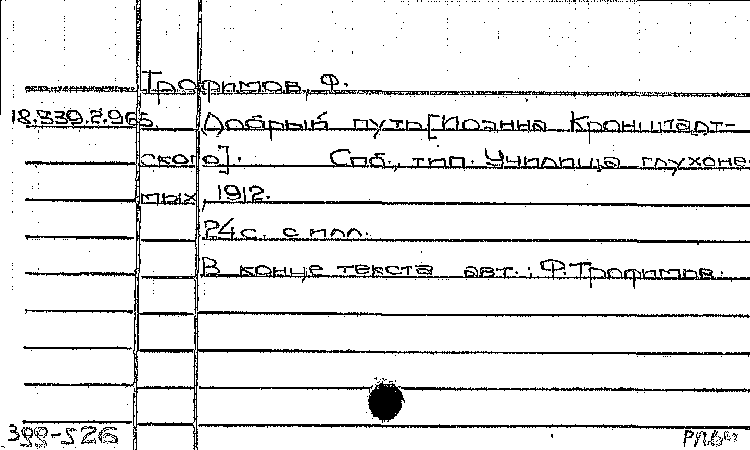 Трофимов, Ф.
18.339.2.965 Добрый путь [Иоанна Кронштадт-
ского]. Спб., тип. Училища глухоне
мых, 1912.
24 с. с илл.
В конце текста авт.: Ф. Трофимов.
399-526